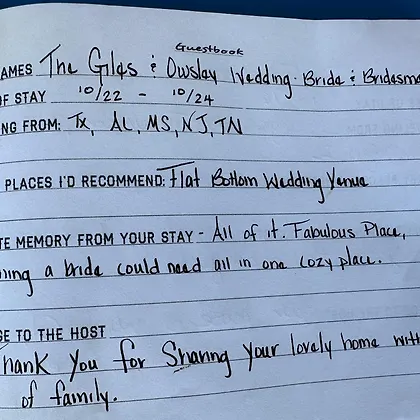 Guestbook
AMES The Giles & Owsley Wedding - Bride & Bridesma
OF STAY 10/22 - 10/24
NG FROM: TX, AL, MS, NJ, TN
PLACES I'D RECOMMEND: Flat Bottom Wedding Venue
TE MEMORY FROM YOUR STAY - All of it. Fabulous Place,
hing a bride could need all in one cozy place.
GE TO THE HOST
hank You for Sharing your lovely home with
of family.